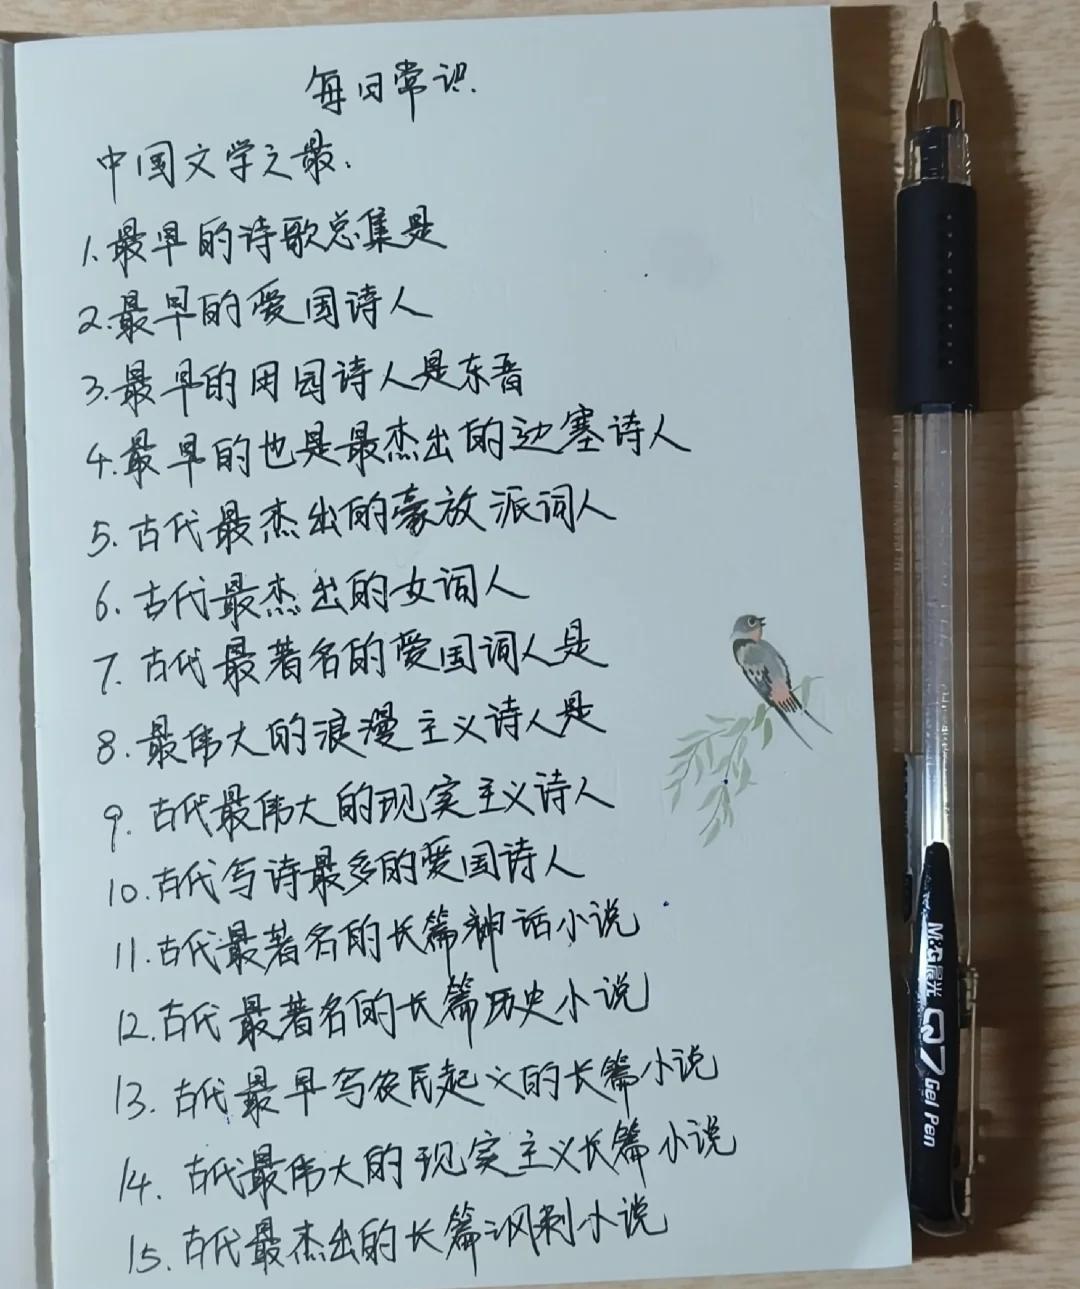 每日常识.
中国文学之最.
1.最早的诗歌总集是
2.最早的爱国诗人
3.最早的田园诗人是东晋
4.最早的也是最杰出的边塞诗人
5.古代最杰出的豪放派词人
6.古代最杰出的女词人
7.古代最著名的爱国词人是
8.最伟大的浪漫主义诗人是
9.古代最伟大的现实主义诗人
10.古代写诗最多的爱国诗人
11.古代最著名的长篇神话小说
12.古代最著名的长篇历史小说
13.古代最早写农民起义的长篇小说
14.古代最伟大的现实主义长篇小说
15.古代最杰出的长篇讽刺小说
M&G晨光 Q7 Gel Pen